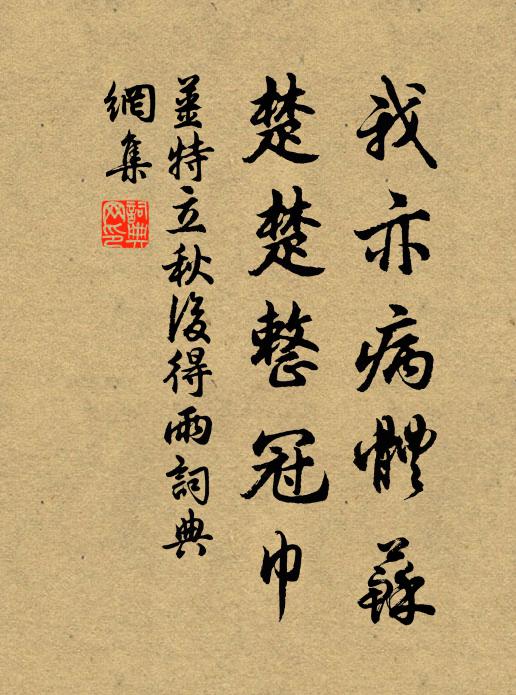 我亦病體蘇
楚楚整冠巾
姜特立秋後得雨詞典
網集
詞典
網印